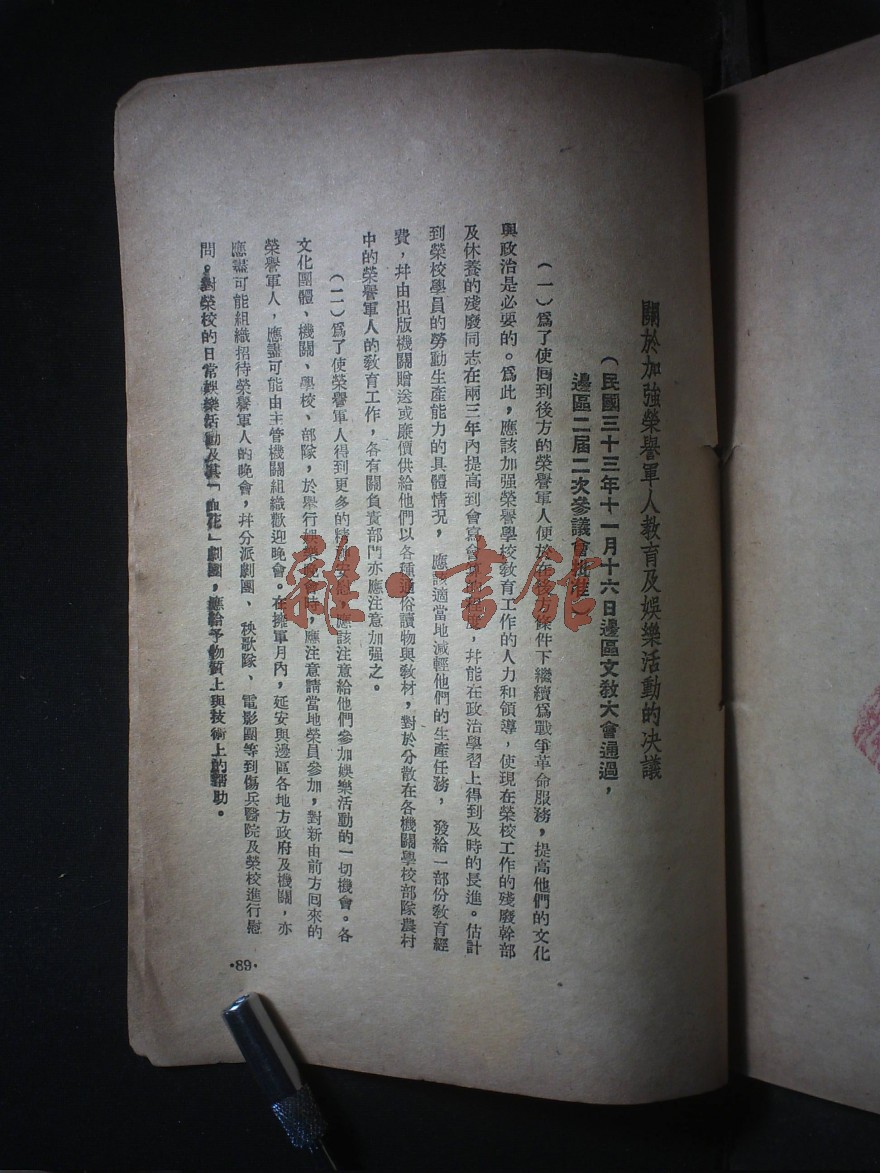 關於加強榮譽軍人教育及娛樂活動的決議
（民國三十三年十一月十六日邊區文敎大會通過，
邊區二届二次參議會批准）
（一）爲了使回到後方的榮譽軍人便於在後方條件下繼續爲戰爭革命服務，提高他們的文化
與政治是必要的。爲此，應該加强榮譽學校敎育工作的人力和領導，使現在榮校工作的殘廢幹部
及休養的殘廢同志在兩三年內提高到會寫會，幷能在政治學習上得到及時的長進。估計
到榮校學員的勞動生產能力的具體情況，應該適當地減輕他們的生產任務，發給一部份敎育經
費，幷由出版機關贈送或廉價供給他們以各種通俗讀物與敎材，對於分散在各機關學校部隊農村
中的榮譽軍人的敎育工作，各有關負責部門亦應注意加强之。
（二）爲了使榮譽軍人得到更多的精神安慰，應該注意給他們參加娛樂活動的一切機會。各
文化團體、機關、學校、部隊，於舉行娛樂晚會時，應注意請當地榮員參加，對新由前方回來的
榮譽軍人，應儘可能由主管機關組織歡迎晚會。在擁軍月內，延安與邊區各地方政府及機關，亦
應儘可能組織招待榮譽軍人的晚會，幷分派劇團、秧歌隊、電影團等到傷兵醫院及榮校進行慰
問。對榮校的日常娛樂活動及其「血花」劇團，應給予物質上與技術上的幫助。
·89·
雜·書館